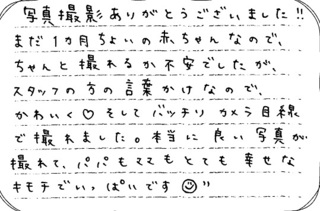 写真撮影ありがとうございました!!
まだ1カ月ちょいの赤ちゃんなので、
ちゃんと撮れるか不安でしたが、
スタッフの方の言葉かけなので、
かわいく♡そしてバッチリカメラ目線
で撮れました。本当に良い写真が
撮れて、パパもママもとても幸せな
キモチでいっぱいです☺"